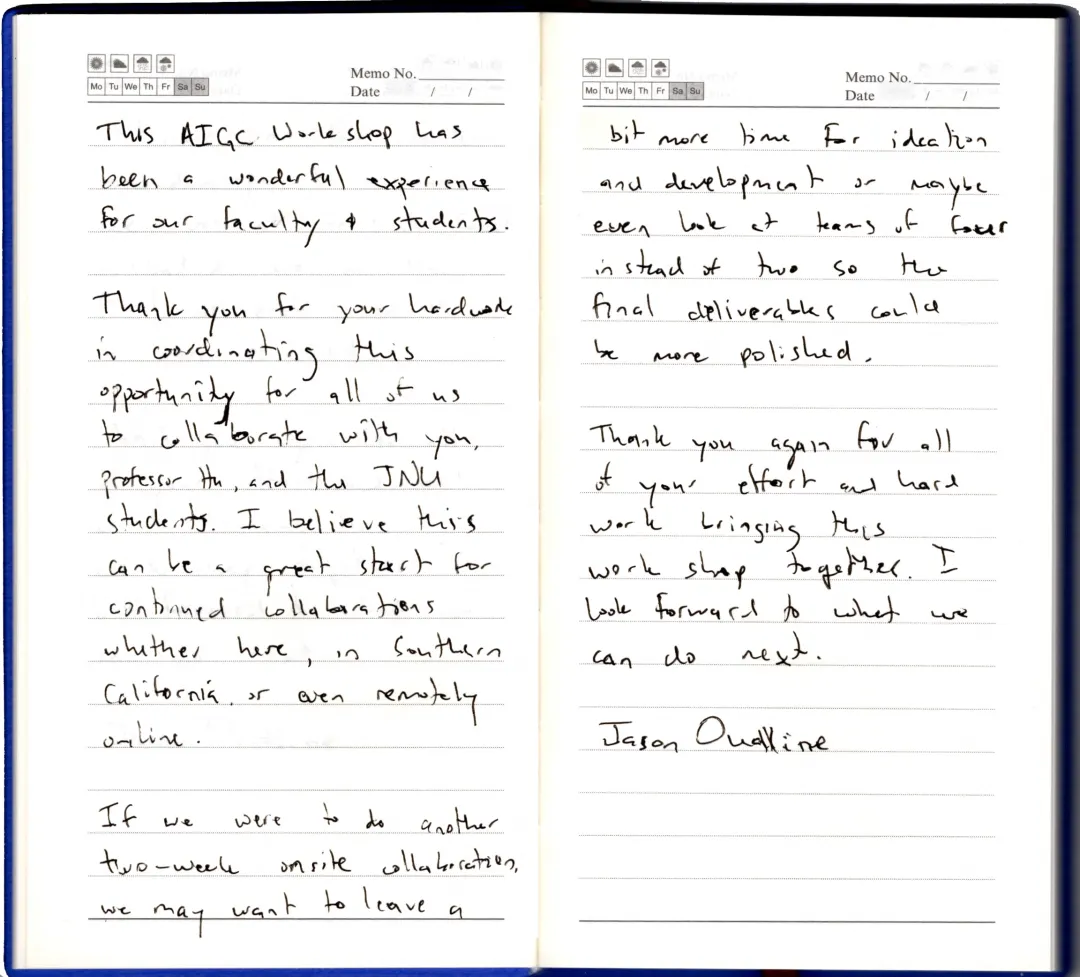 Mo Tu We Th Fr Sa Su
Memo No.
Date / /
This AIGC Workshop has
been a wonderful experience
for our faculty & students.
Thank you for your hardwork
in coordinating this
opportunity for all of us
to collaborate with you,
professor Hu, and the JNU
students. I believe this
can be a great start for
continued collaborations
whether here, in Southern
California, or even remotely
online.
If we were to do another
two-week onsite collaboration,
we may want to leave a
Mo Tu We Th Fr Sa Su
Memo No.
Date / /
bit more time for ideation
and development or maybe
even look at teams of four
instead of two so the
final deliverables could
be more polished.
Thank you again for all
of your effort and hard
work bringing this
work shop together. I
look forward to what we
can do next.
Jason